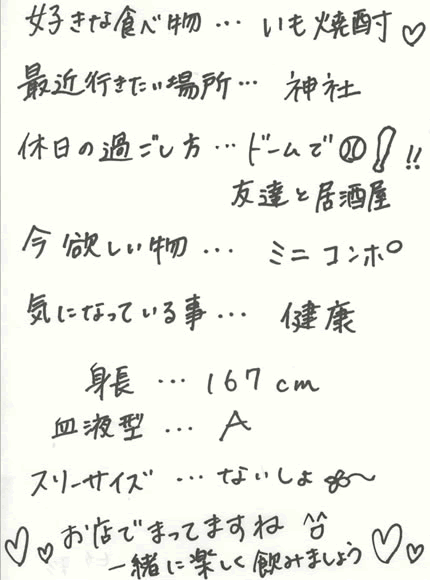 好きな食べ物 … いも焼酎♡
最近行きたい場所… 神社
休日の過ごし方 … ドームで⚾!!!
友達と居酒屋
今欲しい物 … ミニコンポ
気になっている事 … 健康
身長 … 167cm
血液型 … A
スリーサイズ … ないしょ
♡♡お店でまってますね
一緒に楽しく飲みましょう♡♡